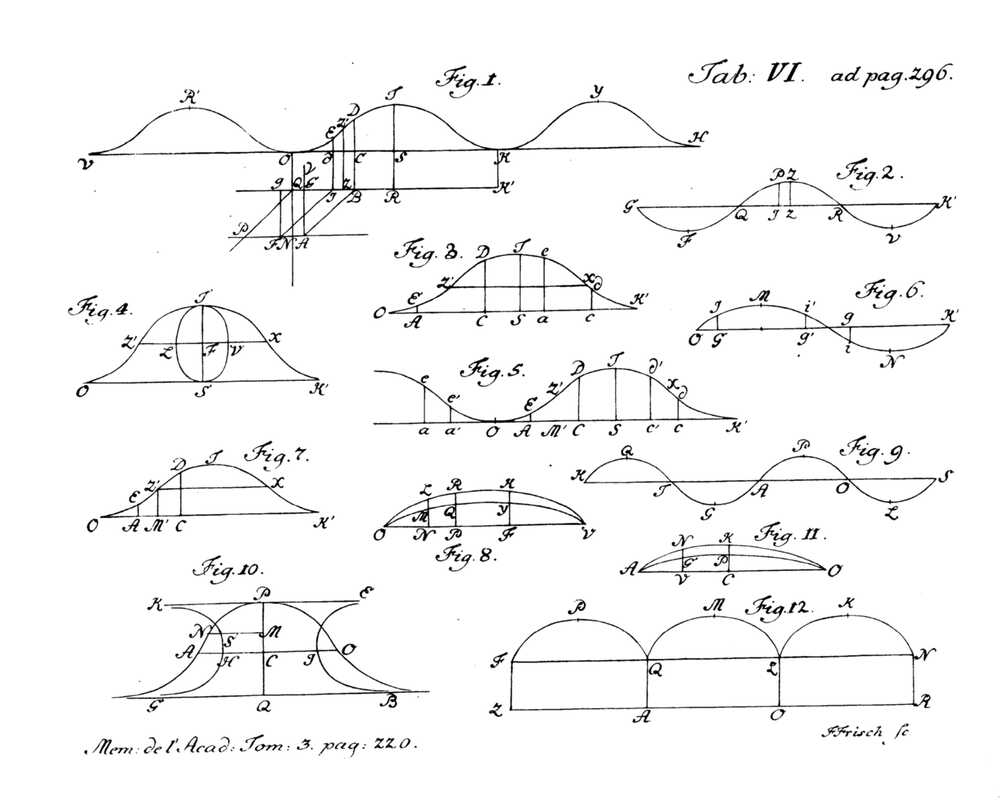 Tab: VI. ad pag. 296.
Fig. 1.
R' T Y
V O E Z' D ∂ C S H H
g Q G I Z B R H'
P F N A
Fig. 2.
G F Q P Z I z R V K'
Fig. 3.
O E A Z' D C T S e a x ∂ c K'
Fig. 4.
T Z' L F V X O S K'
Fig. 5.
e e' a a' O E A Z' M' D C T S ∂' c' x ∂ c K'
Fig. 6.
O I G M i' g' g i N K'
Fig. 7.
O E A Z' M' D C T X K'
Fig. 8.
L R H M Q y O N P F V
Fig. 9.
K Q T G A P O L S
Fig. 10.
K P E N S M A H C g O G Q B
Fig. 11.
N K G P A V C O
Fig. 12.
P M K F Q L N Z A O R
Mem: de l'Acad: Tom: 3. pag: 220.
JFrisch sc